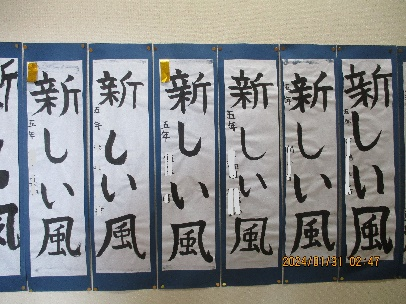 新しい風
五年
新しい風
五年
新しい風
五年
新しい風
五年
新しい風
五年
新しい風
五年
2024/01/31 02:47